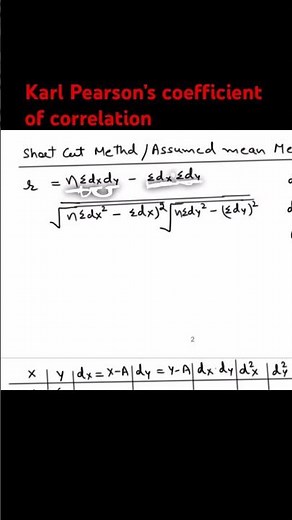 Karl Pearson's coefficient
of correlation
Short Cut Methd / Assumed mean Me
r = nΣdxdy - Σdx Σdy
√nΣdx² - Σdx)² √nΣdy² - (Σdy)²
2
x | y | dx = x-A | dy = y-A | dx dy | d²x | d²y